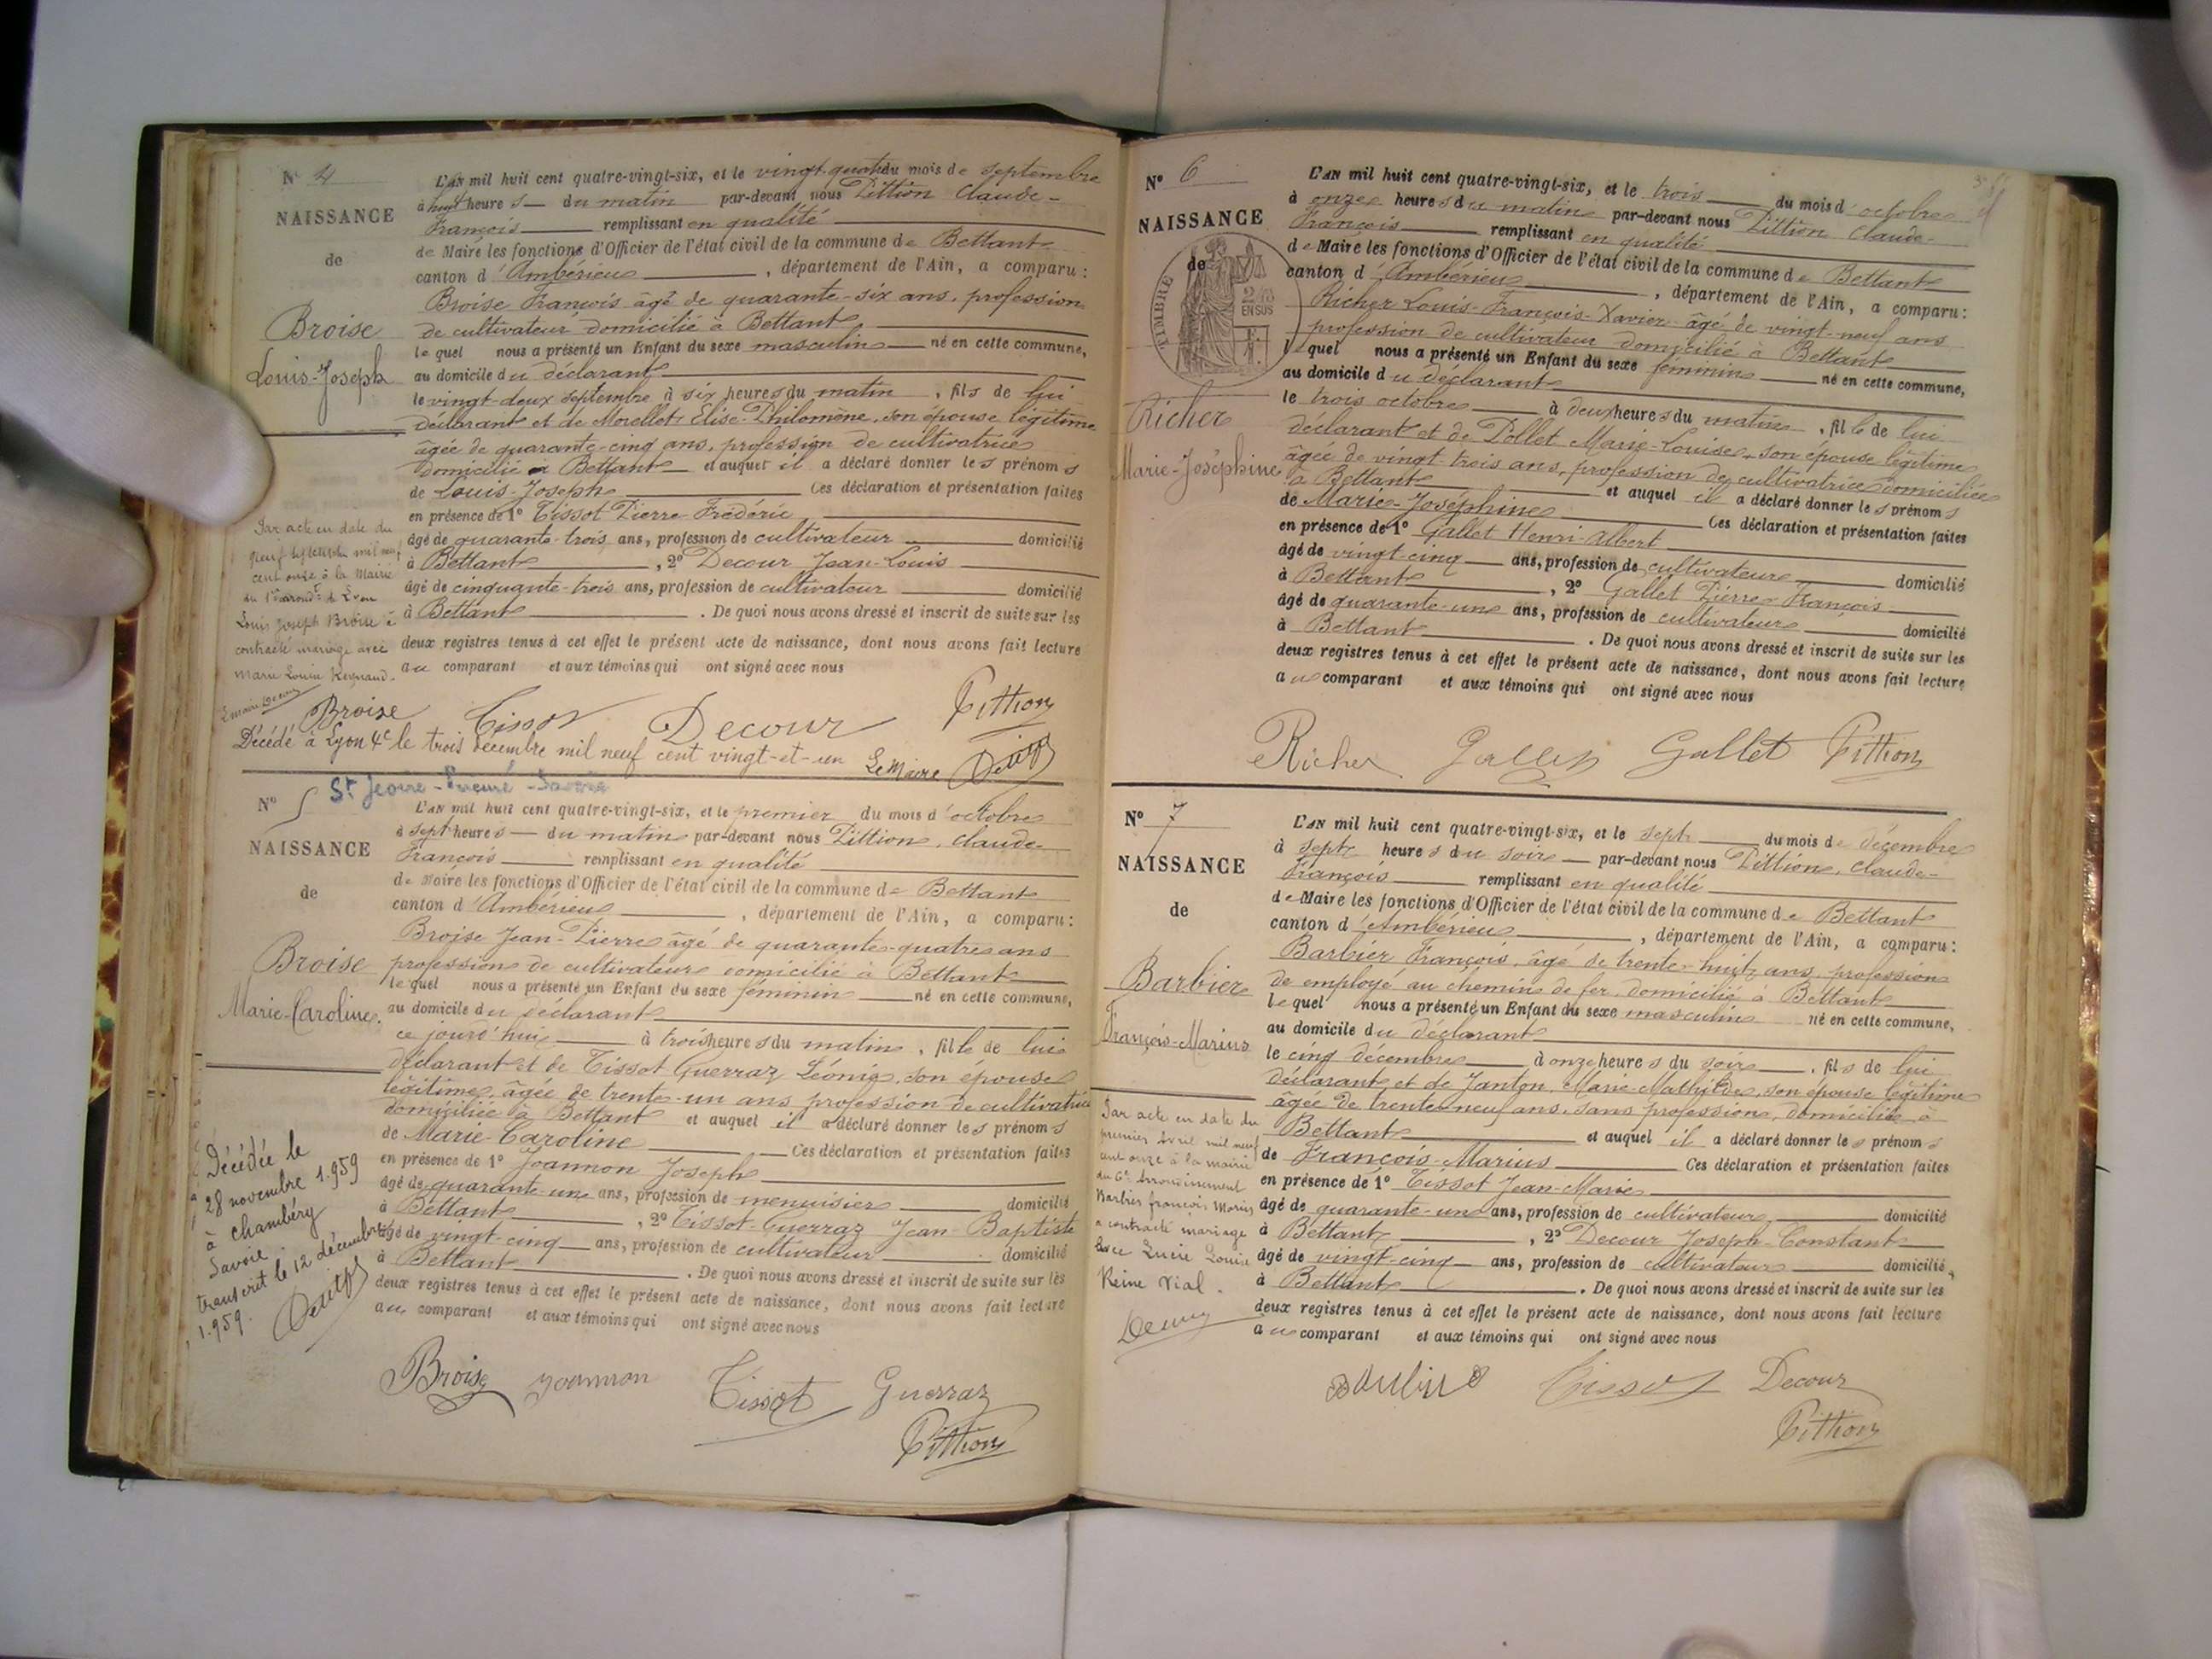 N° 4
NAISSANCE
de
Broise
Louis-Joseph
L'AN mil huit cent quatre-vingt-six, et le vingt-quatre du mois de septembre
à huit heures du matin par-devant nous Pittion Claude-
François remplissant en qualité
de Maire les fonctions d'Officier de l'état civil de la commune de Bettant
canton d'Ambérieu, département de l'Ain, a comparu :
Broise François âgé de quarante-six ans, profession
de cultivateur domicilié à Bettant
lequel nous a présenté un Enfant du sexe masculin né en cette commune,
au domicile du déclarant
le vingt-deux septembre à six heures du matin, fils de lui
déclarant et de Morellet Elise-Philomène, son épouse légitime
âgée de quarante-cinq ans, profession de cultivatrice
domicilié à Bettant et auquel il a déclaré donner les prénoms
de Louis-Joseph Ces déclaration et présentation faites
en présence de 1° Tissot Pierre Frédéric
âgé de quarante-trois ans, profession de cultivateur domicilié
à Bettant, 2° Decour Jean-Louis
âgé de cinquante-trois ans, profession de cultivateur domicilié
à Bettant. De quoi nous avons dressé et inscrit de suite sur les
deux registres tenus à cet effet le présent acte de naissance, dont nous avons fait lecture
au comparant et aux témoins qui ont signé avec nous
Par acte en date du
neuf septembre mil neuf
cent onze à la Mairie
du 1er arrondt de Lyon
Louis Joseph Broise a
contracté mariage avec
Marie Louise Reynaud.
Le maire Decour
Broise Tissot Decour Pittion
Décédé à Lyon 4e le trois décembre mil neuf cent vingt-et-un Le Maire
N° 5
St Jeoire-Prieuré-Savoie
NAISSANCE
de
Broise
Marie-Caroline.
L'AN mil huit cent quatre-vingt-six, et le premier du mois d'octobre
à sept heures du matin par-devant nous Pittion, Claude-
François remplissant en qualité
de Maire les fonctions d'Officier de l'état civil de la commune de Bettant
canton d'Ambérieu, département de l'Ain, a comparu :
Broise Jean-Pierre âgé de quarante-quatre ans
profession de cultivateur domicilié à Bettant
lequel nous a présenté un Enfant du sexe féminin né en cette commune,
au domicile du déclarant
ce jourd'hui à trois heures du matin, fille de lui
déclarant et de Tissot Guerraz Léonie, son épouse
légitime, âgée de trente-un ans profession de cultivatrice
domiciliée à Bettant et auquel il a déclaré donner les prénoms
de Marie-Caroline Ces déclaration et présentation faites
en présence de 1° Joannon Joseph
âgé de quarante-un ans, profession de menuisier domicilié
à Bettant, 2° Tissot-Guerraz Jean-Baptiste
âgé de vingt-cinq ans, profession de cultivateur domicilié
à Bettant. De quoi nous avons dressé et inscrit de suite sur les
deux registres tenus à cet effet le présent acte de naissance, dont nous avons fait lecture
au comparant et aux témoins qui ont signé avec nous
Décédée le
28 novembre 1.959
à chambéry
Savoie.
transcrit le 12 décembre
1.959.
Broise Joannon Tissot Guerraz
Pittion
N° 6
NAISSANCE
de
TIMBRE
2/10
EN SUS
Richer
Marie-Joséphine
L'AN mil huit cent quatre-vingt-six, et le trois du mois d'octobre
à onze heures du matin par-devant nous Pittion Claude-
François remplissant en qualité
de Maire les fonctions d'Officier de l'état civil de la commune de Bettant
canton d'Ambérieu, département de l'Ain, a comparu :
Richer Louis-François-Xavier âgé de vingt-neuf ans
profession de cultivateur domicilié à Bettant
lequel nous a présenté un Enfant du sexe féminin né en cette commune,
au domicile du déclarant
le trois octobre à deux heures du matin, fille de lui
déclarant et de Pollet Marie-Louise, son épouse légitime
âgée de vingt trois ans, profession de cultivatrice domiciliée
à Bettant et auquel il a déclaré donner les prénoms
de Marie-Joséphine Ces déclaration et présentation faites
en présence de 1° Gallet Henri-Albert
âgé de vingt-cinq ans, profession de cultivateur domicilié
à Bettant, 2° Gallet Pierre-François
âgé de quarante-un ans, profession de cultivateur domicilié
à Bettant. De quoi nous avons dressé et inscrit de suite sur les
deux registres tenus à cet effet le présent acte de naissance, dont nous avons fait lecture
au comparant et aux témoins qui ont signé avec nous
Richer Gallet Gallet Pittion
N° 7
NAISSANCE
de
Barbier
François-Marius
L'AN mil huit cent quatre-vingt-six, et le sept du mois de décembre
à sept heures du soir par-devant nous Pittion, Claude-
François remplissant en qualité
de Maire les fonctions d'Officier de l'état civil de la commune de Bettant
canton d'Ambérieu, département de l'Ain, a comparu :
Barbier François, âgé de trente-huit ans, profession
de employé au chemin de fer domicilié à Bettant
lequel nous a présenté un Enfant du sexe masculin né en cette commune,
au domicile du déclarant
le cinq décembre à onze heures du soir, fils de lui
déclarant et de Janton, Marie-Mathilde, son épouse légitime
âgée de trente-neuf ans, sans profession, domiciliée à
Bettant et auquel il a déclaré donner les prénoms
de François-Marius Ces déclaration et présentation faites
en présence de 1° Tissot Jean-Marie
âgé de quarante-un ans, profession de cultivateur domicilié
à Bettant, 2° Decour Joseph-Constant
âgé de vingt-cinq ans, profession de cultivateur domicilié
à Bettant. De quoi nous avons dressé et inscrit de suite sur les
deux registres tenus à cet effet le présent acte de naissance, dont nous avons fait lecture
au comparant et aux témoins qui ont signé avec nous
Par acte en date du
premier Avril mil neuf
cent onze à la mairie
du 6e Arrondissement
Barbier françois Marius
a contracté mariage
avec Lucie Louise
Reine Vial.
Decour
Barbier Tissot Decour
Pittion